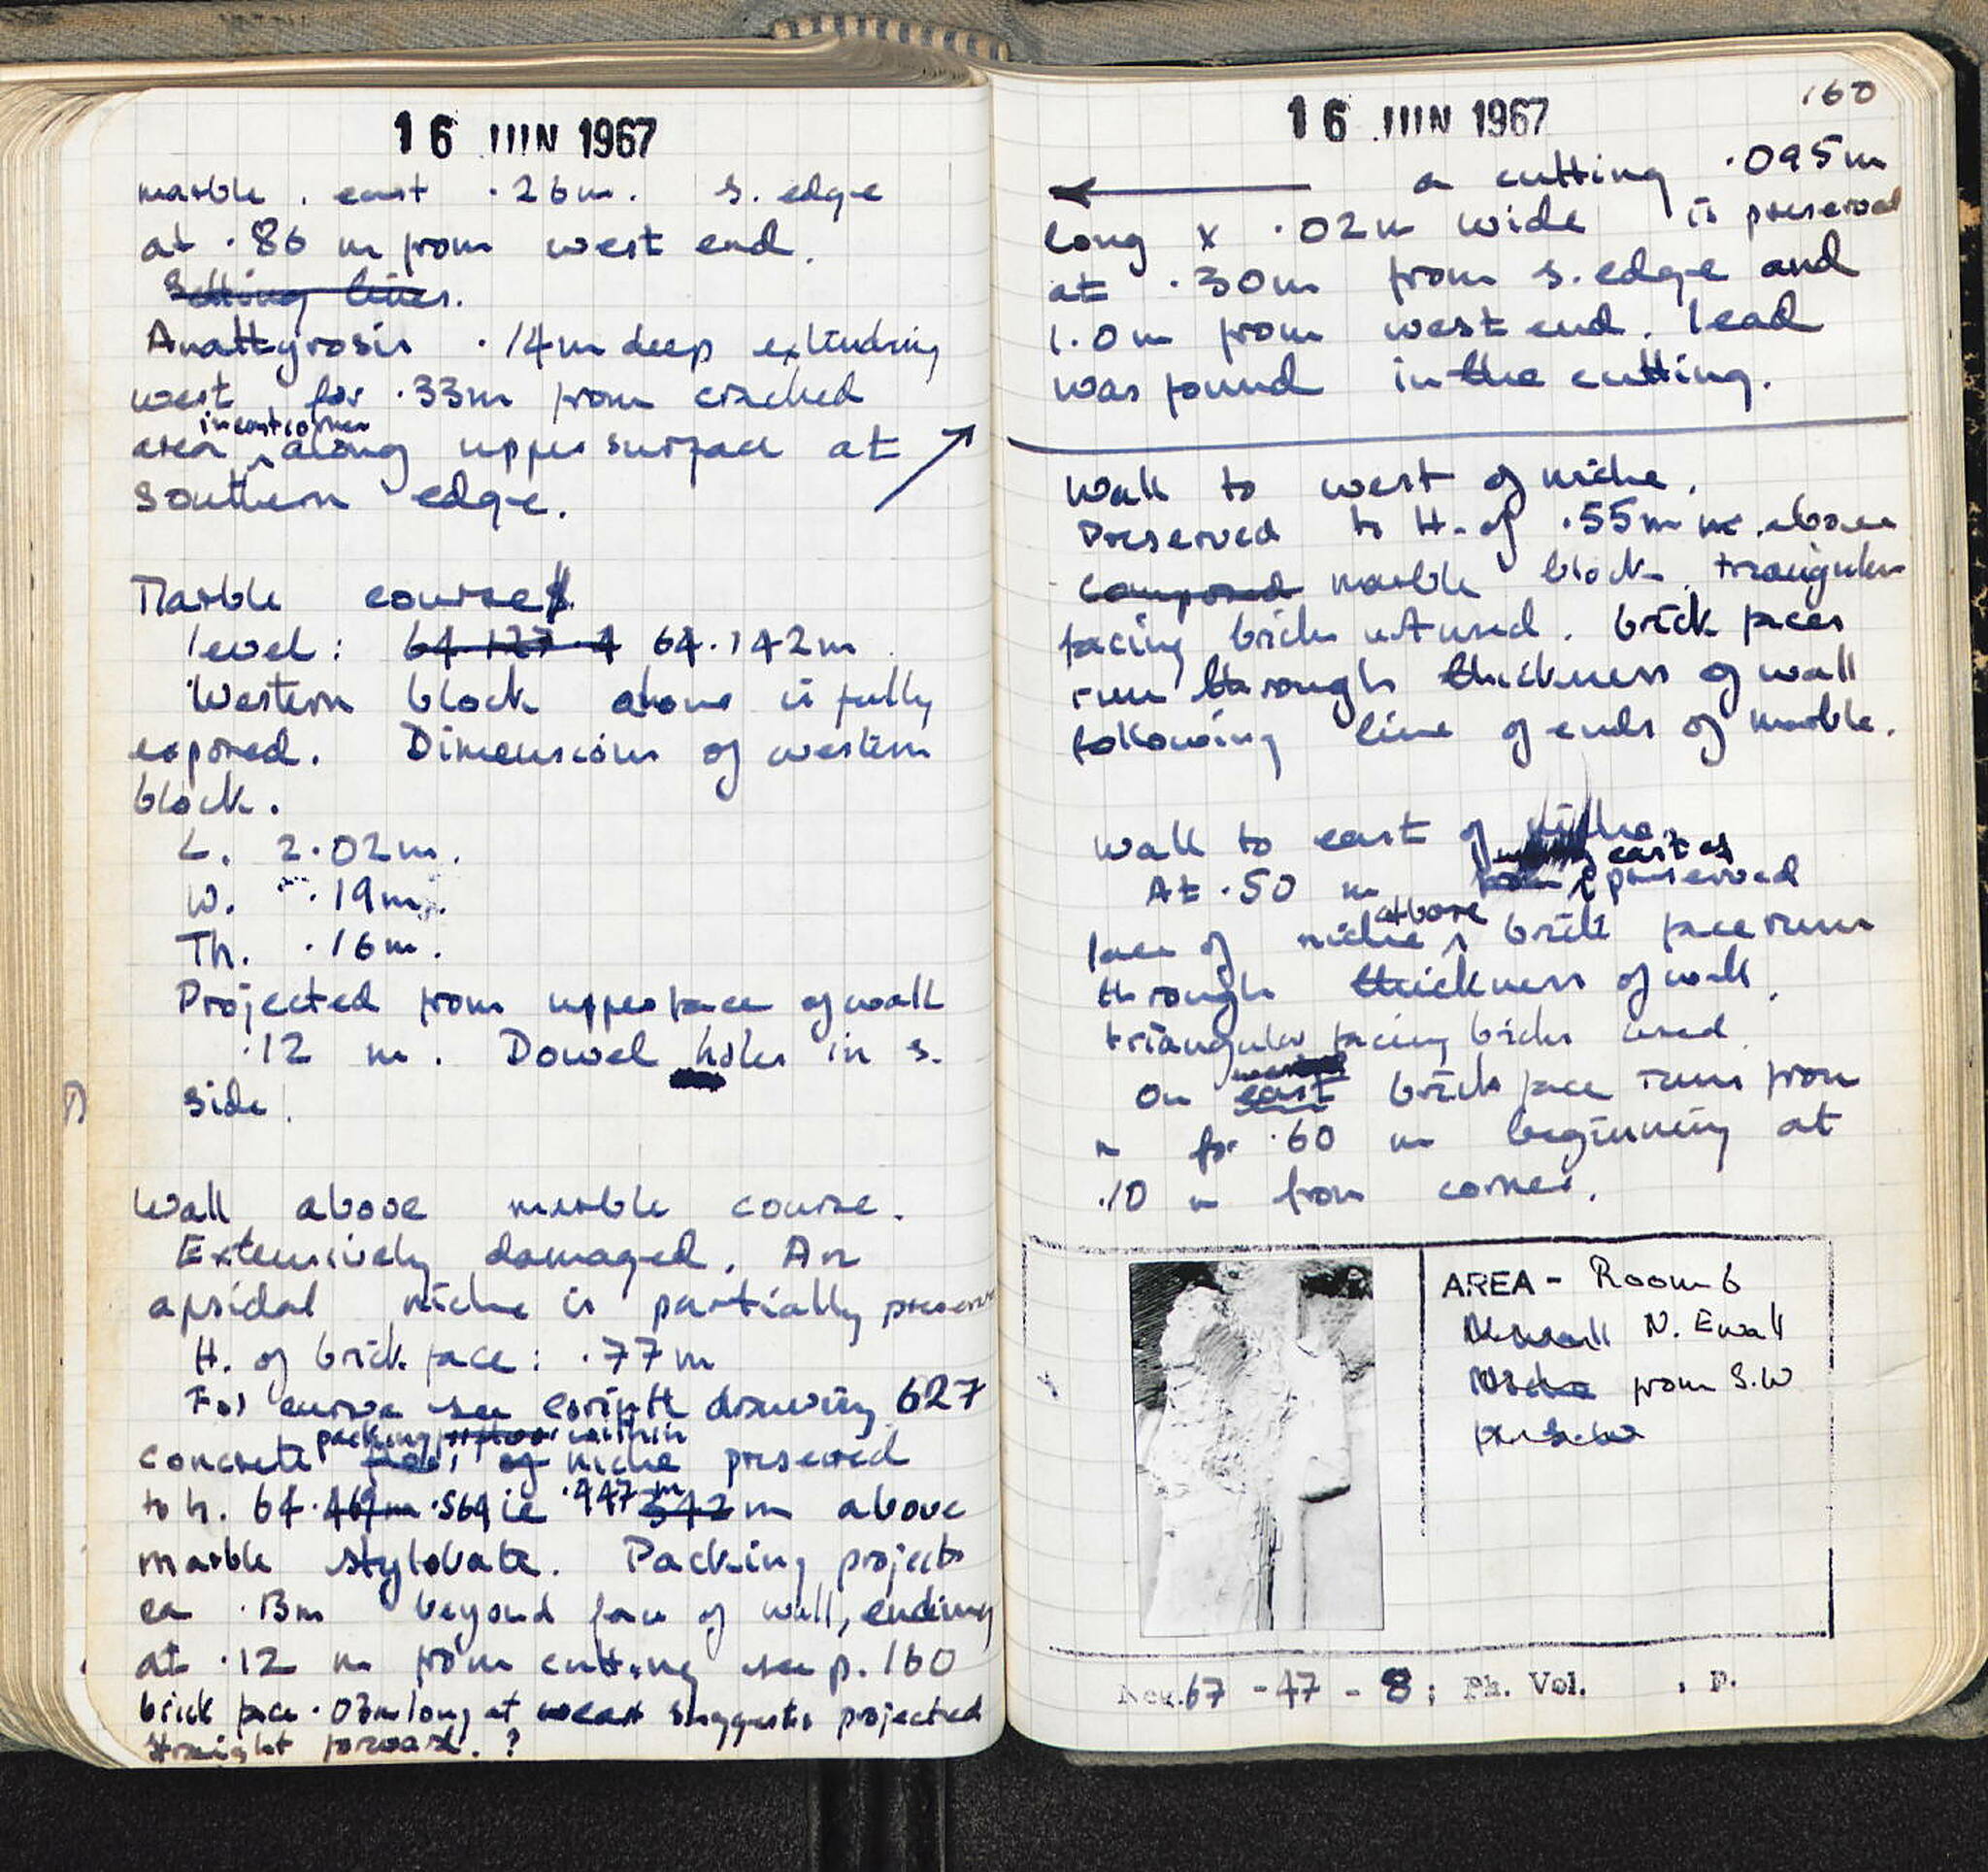 16 JUN 1967
marble, east .26m. S. edge
at .86 m from west end.
Setting lines.
Anathyrosis .14m deep extending
west for .33m from cracked
in east corner
area along upper surface at
southern edge.
Marble course
level: 64.127 64.142m.
Western block alone is fully
exposed. Dimensions of western
block.
L. 2.02m.
W. .19m.
Th. .16m.
Projected from upper face of wall
.12 m. Dowel holes in s.
side.
Wall above marble course.
Extensively damaged. An
apsidal niche is partially preserv
H. of brick face: .77m
For curve see Corinth drawing 627
packing within
concrete floor of niche preserved
to h. 64.469m .564 ie .447m 342m above
marble stylobate. Packing projects
ca .13m beyond face of wall, ending
at .12 m from cutting see p. 160
brick face .03m long at west suggests projected
straight forward.?
16 JUN 1967
160
a cutting .095m
long x .02m wide is preserved
at .30m from s. edge and
1.0m from west end. Lead
was found in the cutting.
Wall to west of niche.
Preserved to H. of .55m above
composed marble block. triangular
facing bricks used. brick faces
run through thickness of wall
following line of ends of marble.
Wall to east of niche.
east of
At .50 m preserved
above
face of niche brick face runs
through thickness of wall.
triangular facing bricks used.
On east brick face runs from
n for .60 m beginning at
.10 m from corner.
AREA - Room 6
N. E wall
Niche from S.W
from S.W
Neg. 67 - 47 - 8; Ph. Vol. , P.